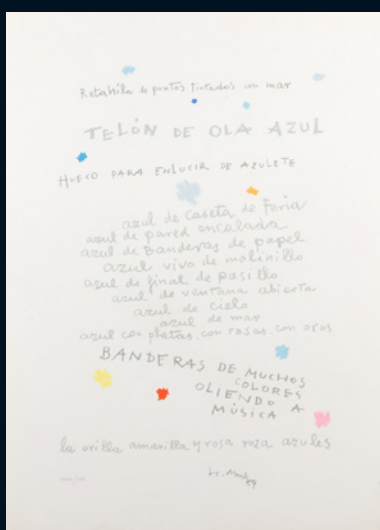 Retahíla de puntos tintados con mar
TELÓN DE OLA AZUL
HUECO PARA ENLUCIR DE AZULETE
azul de caseta de feria
azul de pared encalada
azul de Banderas de papel
azul vivo de molinillo
azul de final de pasillo
azul de ventana abierta
azul de cielo
azul de mar
azul con platas, con rosas, con oros
BANDERAS DE MUCHOS
COLORES
OLIENDO A
MÚSICA
la orilla amarilla y rosa roza azules